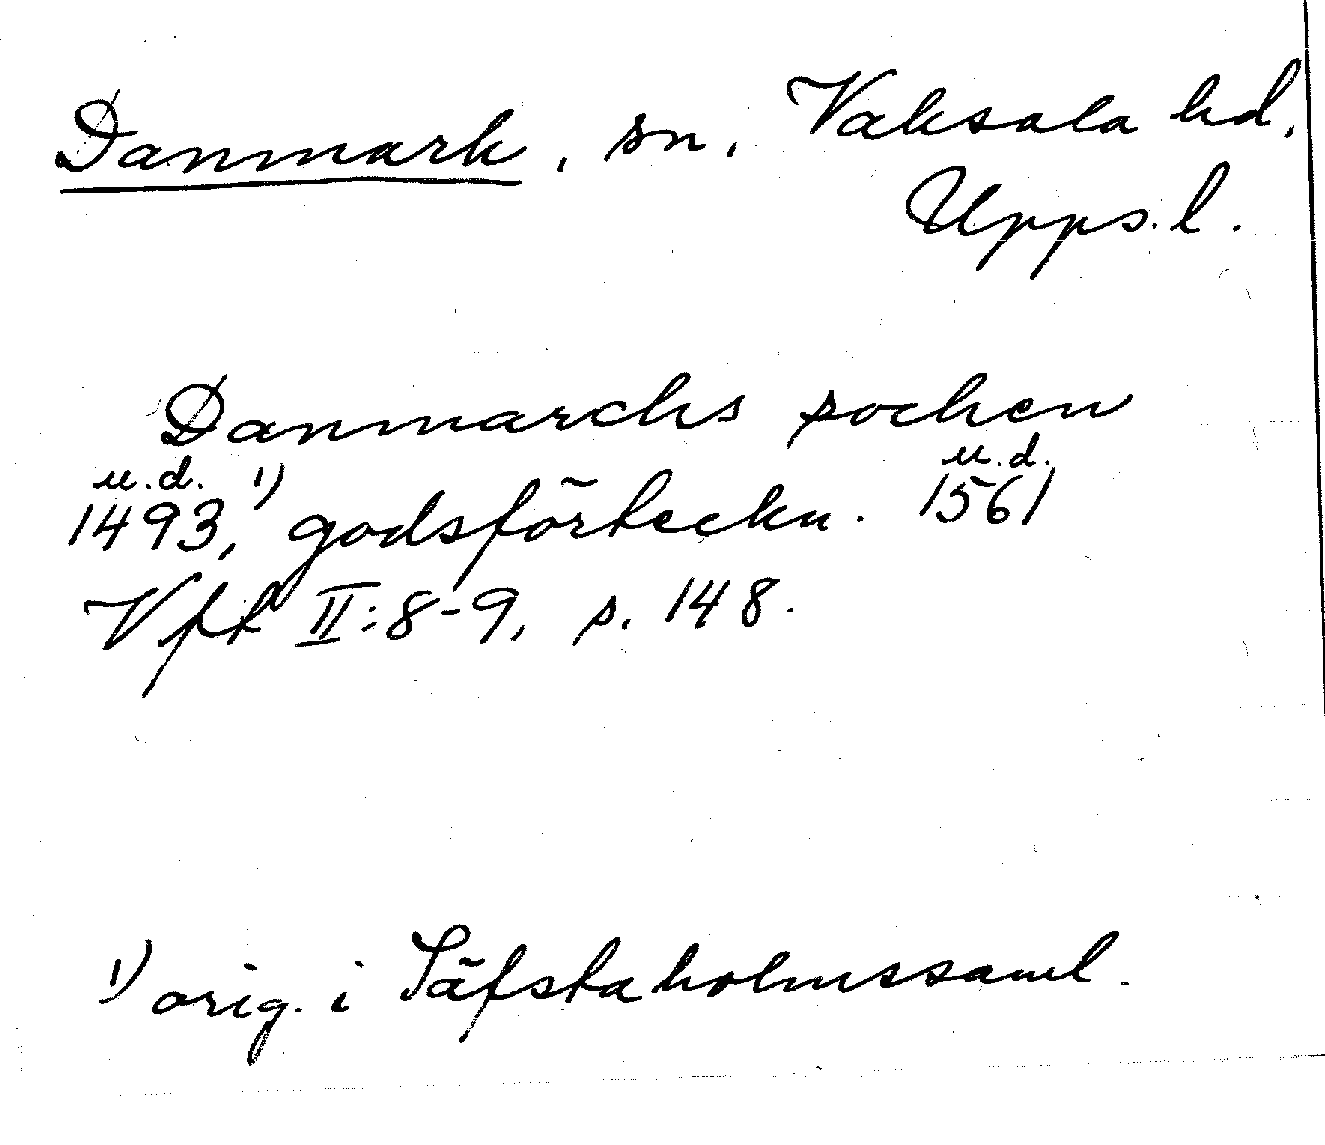 Danmark, sn, Vaksala hd,
Upps. l.
Danmarchs sochen
u.d. 1) u.d.
1493, godsförteckn. 1561
Vfk II:8-9, s. 148.
1) orig. i Säfstaholmssaml.